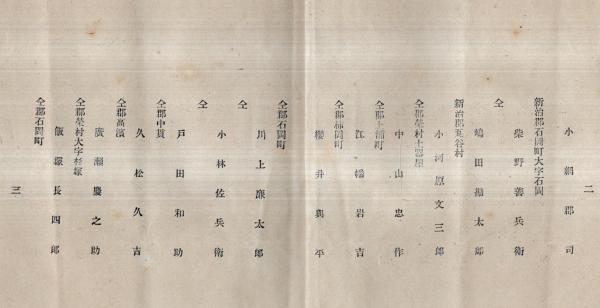 二
小網郡司
新治郡石岡町大字石岡
柴野善兵衛
仝
嶋田勘太郎
新治郡瓦谷村
小河原文三郎
仝郡榮村土器屋
中山忠作
仝郡土浦町
江幡岩吉
仝郡柿岡町
櫻井與平
仝郡石岡町
川上廉太郎
仝
小林佐兵衛
仝
戸田和助
仝郡中貫
久松久吉
仝郡高濱
廣瀬慶之助
仝郡榮村大字
飯塚長四郎
仝郡石岡町
三